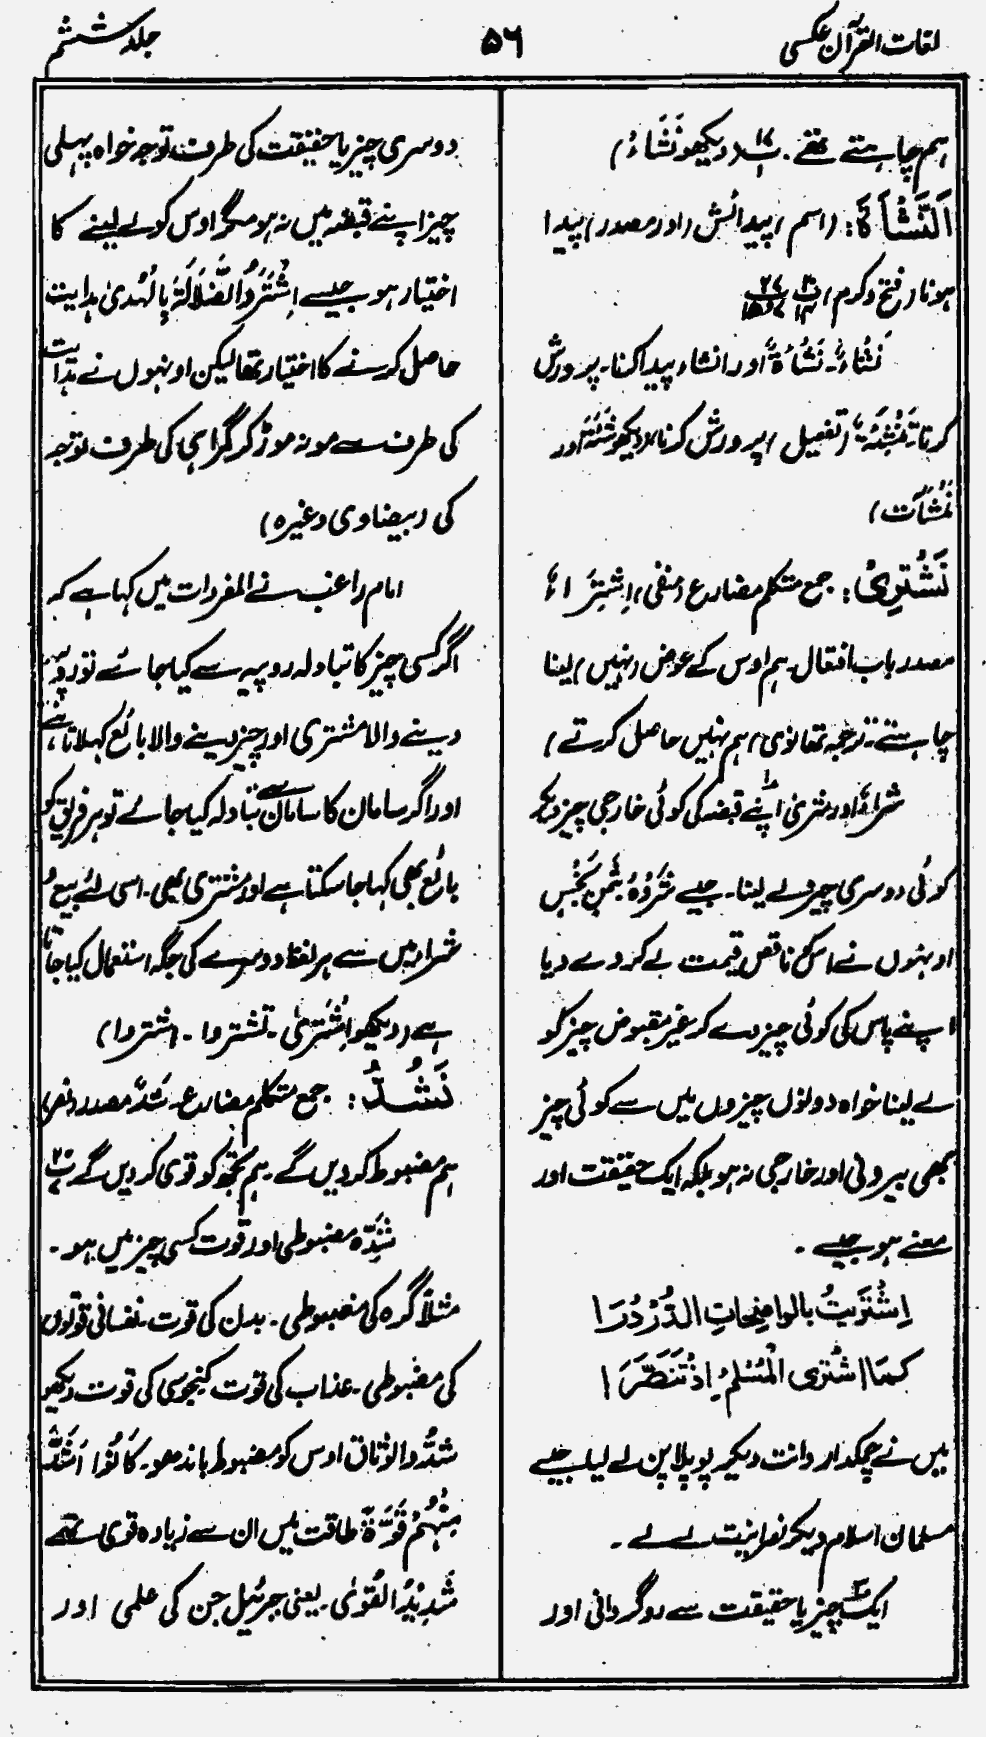 لغات القرآن عکسی
۵۶
جلد ششم
ہم چاہتے تھے۔ (دیکھو نَشَاءُ)
اَلنَّشْأَةَ: (اسم) پیدائش (اور مصدر) پیدا
ہونا (فتح و کرم)
نَشْاءٌ۔ نَشْاءَۃٌ اور انشاء پیدا کنا۔ پرورش
کرنا تَنْشِئَۃٌ (تفعیل) پرورش کرنا (دیکھو نَشْئَۃَ اور
نَشَأَت)
نَشْتَرِیْ: جمع متکلم مضارع (منفی) اِشْتِرَاءٌ
مصدر باب افتعال۔ ہم اوس کے عوض (نہیں) لینا
چاہتے۔ ترجمہ تھانوی) ہم نہیں حاصل کرتے)
شراءٌ اور شریٰ اپنے قبضہ کی کوئی خارجی چیز دیکر
کوئی دوسری چیز لے لینا۔ جیسے شَرَوْہُ بِثَمَنٍ بَخْسٍ
اونہوں نے اسکو ناقص قیمت لے کر دے دیا
اپنے پاس کی کوئی چیز دے کر غیر مقبوض چیز کو
لے لینا خواہ دونوں چیزوں میں سے کوئی چیز
بھی بیرونی اور خارجی نہ ہو بلکہ ایک حقیقت اور
معنے ہو جیسے۔
اِشْتَرَیْتُ بالواضِحاتِ الدُّرْدُرَا
کَمَا اشْتَرَی الْمُسْلِمُ اِذْ تَنَصَّرَا
میں نے چمکدار دانت دیکر پوپلا پن لے لیا جیسے
مسلمان اسلام دیکر نصرانیت لے لے۔
ایک چیز یا حقیقت سے روگردانی اور
دوسری چیز یا حقیقت کی طرف توجہ خواہ پہلی
چیز اپنے قبضہ میں نہ ہو مگر اوس کو لے لینے کا
اختیار ہو جیسے اِشْتَرَوُا الضَّلَالَۃَ بِالْہُدیٰ ہدایت
حاصل کرنے کا اختیار تھا لیکن اونہوں نے ہدایت
کی طرف سے مونہ موڑ کر گمراہی کی طرف توجہ
کی (بیضاوی وغیرہ)
امام راغب نے المفردات میں کہا ہے کہ
اگر کسی چیز کا تبادلہ روپیہ سے کیا جائے تو روپیہ
دینے والا مشتری اور چیز دینے والا بائع کہلاتا ہے،
اور اگر سامان کا سامان سے تبادلہ کیا جائے تو ہر فریق کو
بائع بھی کہا جا سکتا ہے اور مشتری بھی۔ اسی لئے بیع و
شراء میں سے ہر لفظ دوسرے کی جگہ استعمال کیا جاتا
ہے (دیکھو اِشْتَریٰ۔ تشتروا۔ اشتروا)
نَشُدُّ: جمع متکلم مضارع۔ شَدٌّ مصدر (نصر)
ہم مضبوط کر دیں گے۔ ہم تجھ کو قوی کر دیں گے
شَدَّہ مضبوطی اور قوت کسی چیز میں ہو۔
مثلاً گرہ کی مضبوطی۔ بدن کی قوت۔ نفسانی قوتوں
کی مضبوطی۔ عذاب کی قوت کنجوسی کی قوت دیکھو
شدُّوا الوثاق اوس کو مضبوط باندھو۔ کَانُوْا اَشَدَّ
مِنْہُمْ قُوَّۃً طاقت میں ان سے زیادہ قوی تھے
شَدِیْدُ الْقُویٰ۔ یعنی جبرئیل جن کی علمی اور